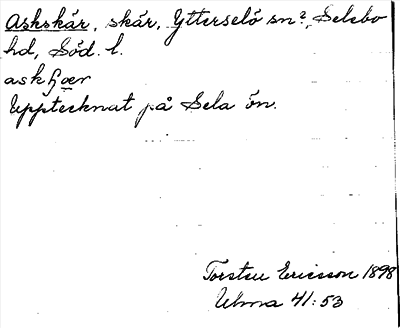 Askskär, skär, Ytterselö sn?, Selebo
hd, Söd. l.
askʃær
Upptecknat på Sela ön.
Torsten Ericsson 1898
Ulma 41:53